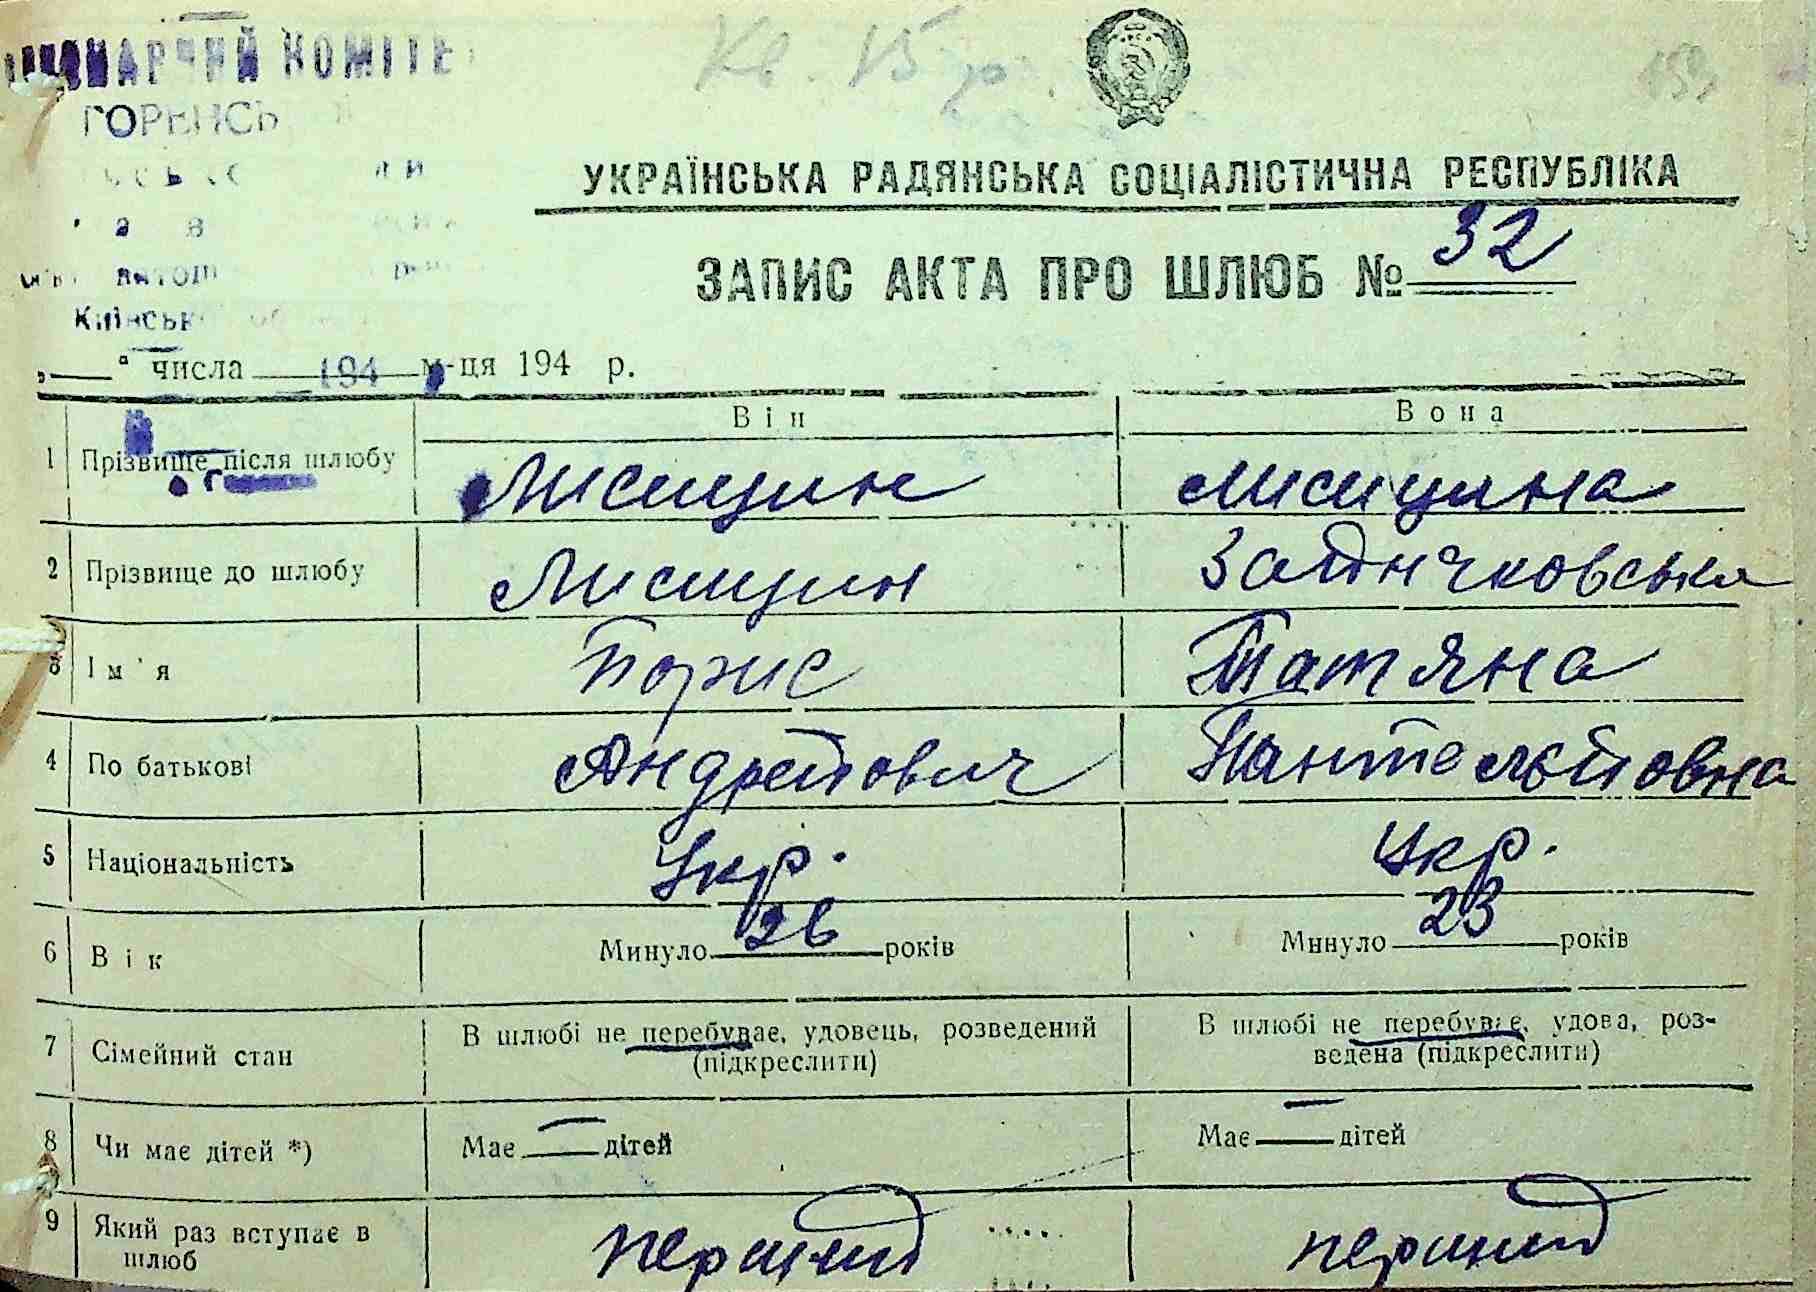 Кв. 15
КОМІТЕ
ГОРЕНСЬ
УКРАЇНСЬКА РАДЯНСЬКА СОЦІАЛІСТИЧНА РЕСПУБЛІКА
ЗАПИС АКТА ПРО ШЛЮБ № 32
„ “ числа 194 м-ця 194 р.
Він Вона
1 Прізвище після шлюбу Лисицин Лисицина
2 Прізвище до шлюбу Лисицин
3 Ім'я Борис Татяна
4 По батькові Андрейович Пантелейовна
5 Національність Укр. Укр.
6 Вік Минуло 26 років Минуло 23 років
7 Сімейний стан В шлюбі не перебуває, удовець, розведений (підкреслити) В шлюбі не перебуває, удова, роз-
ведена (підкреслити)
8 Чи має дітей *) Має — дітей Має — дітей
9 Який раз вступає в шлюб перший перший